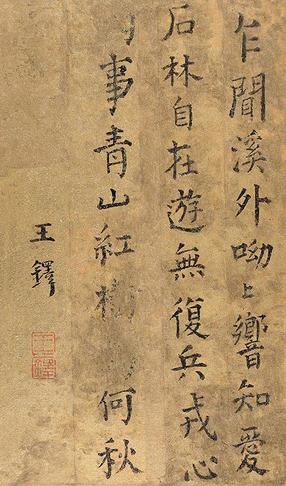 乍聞溪外呦〻響知愛
石林自在遊無復兵戎心
事青山紅樹何秋
王鐸
王鐸